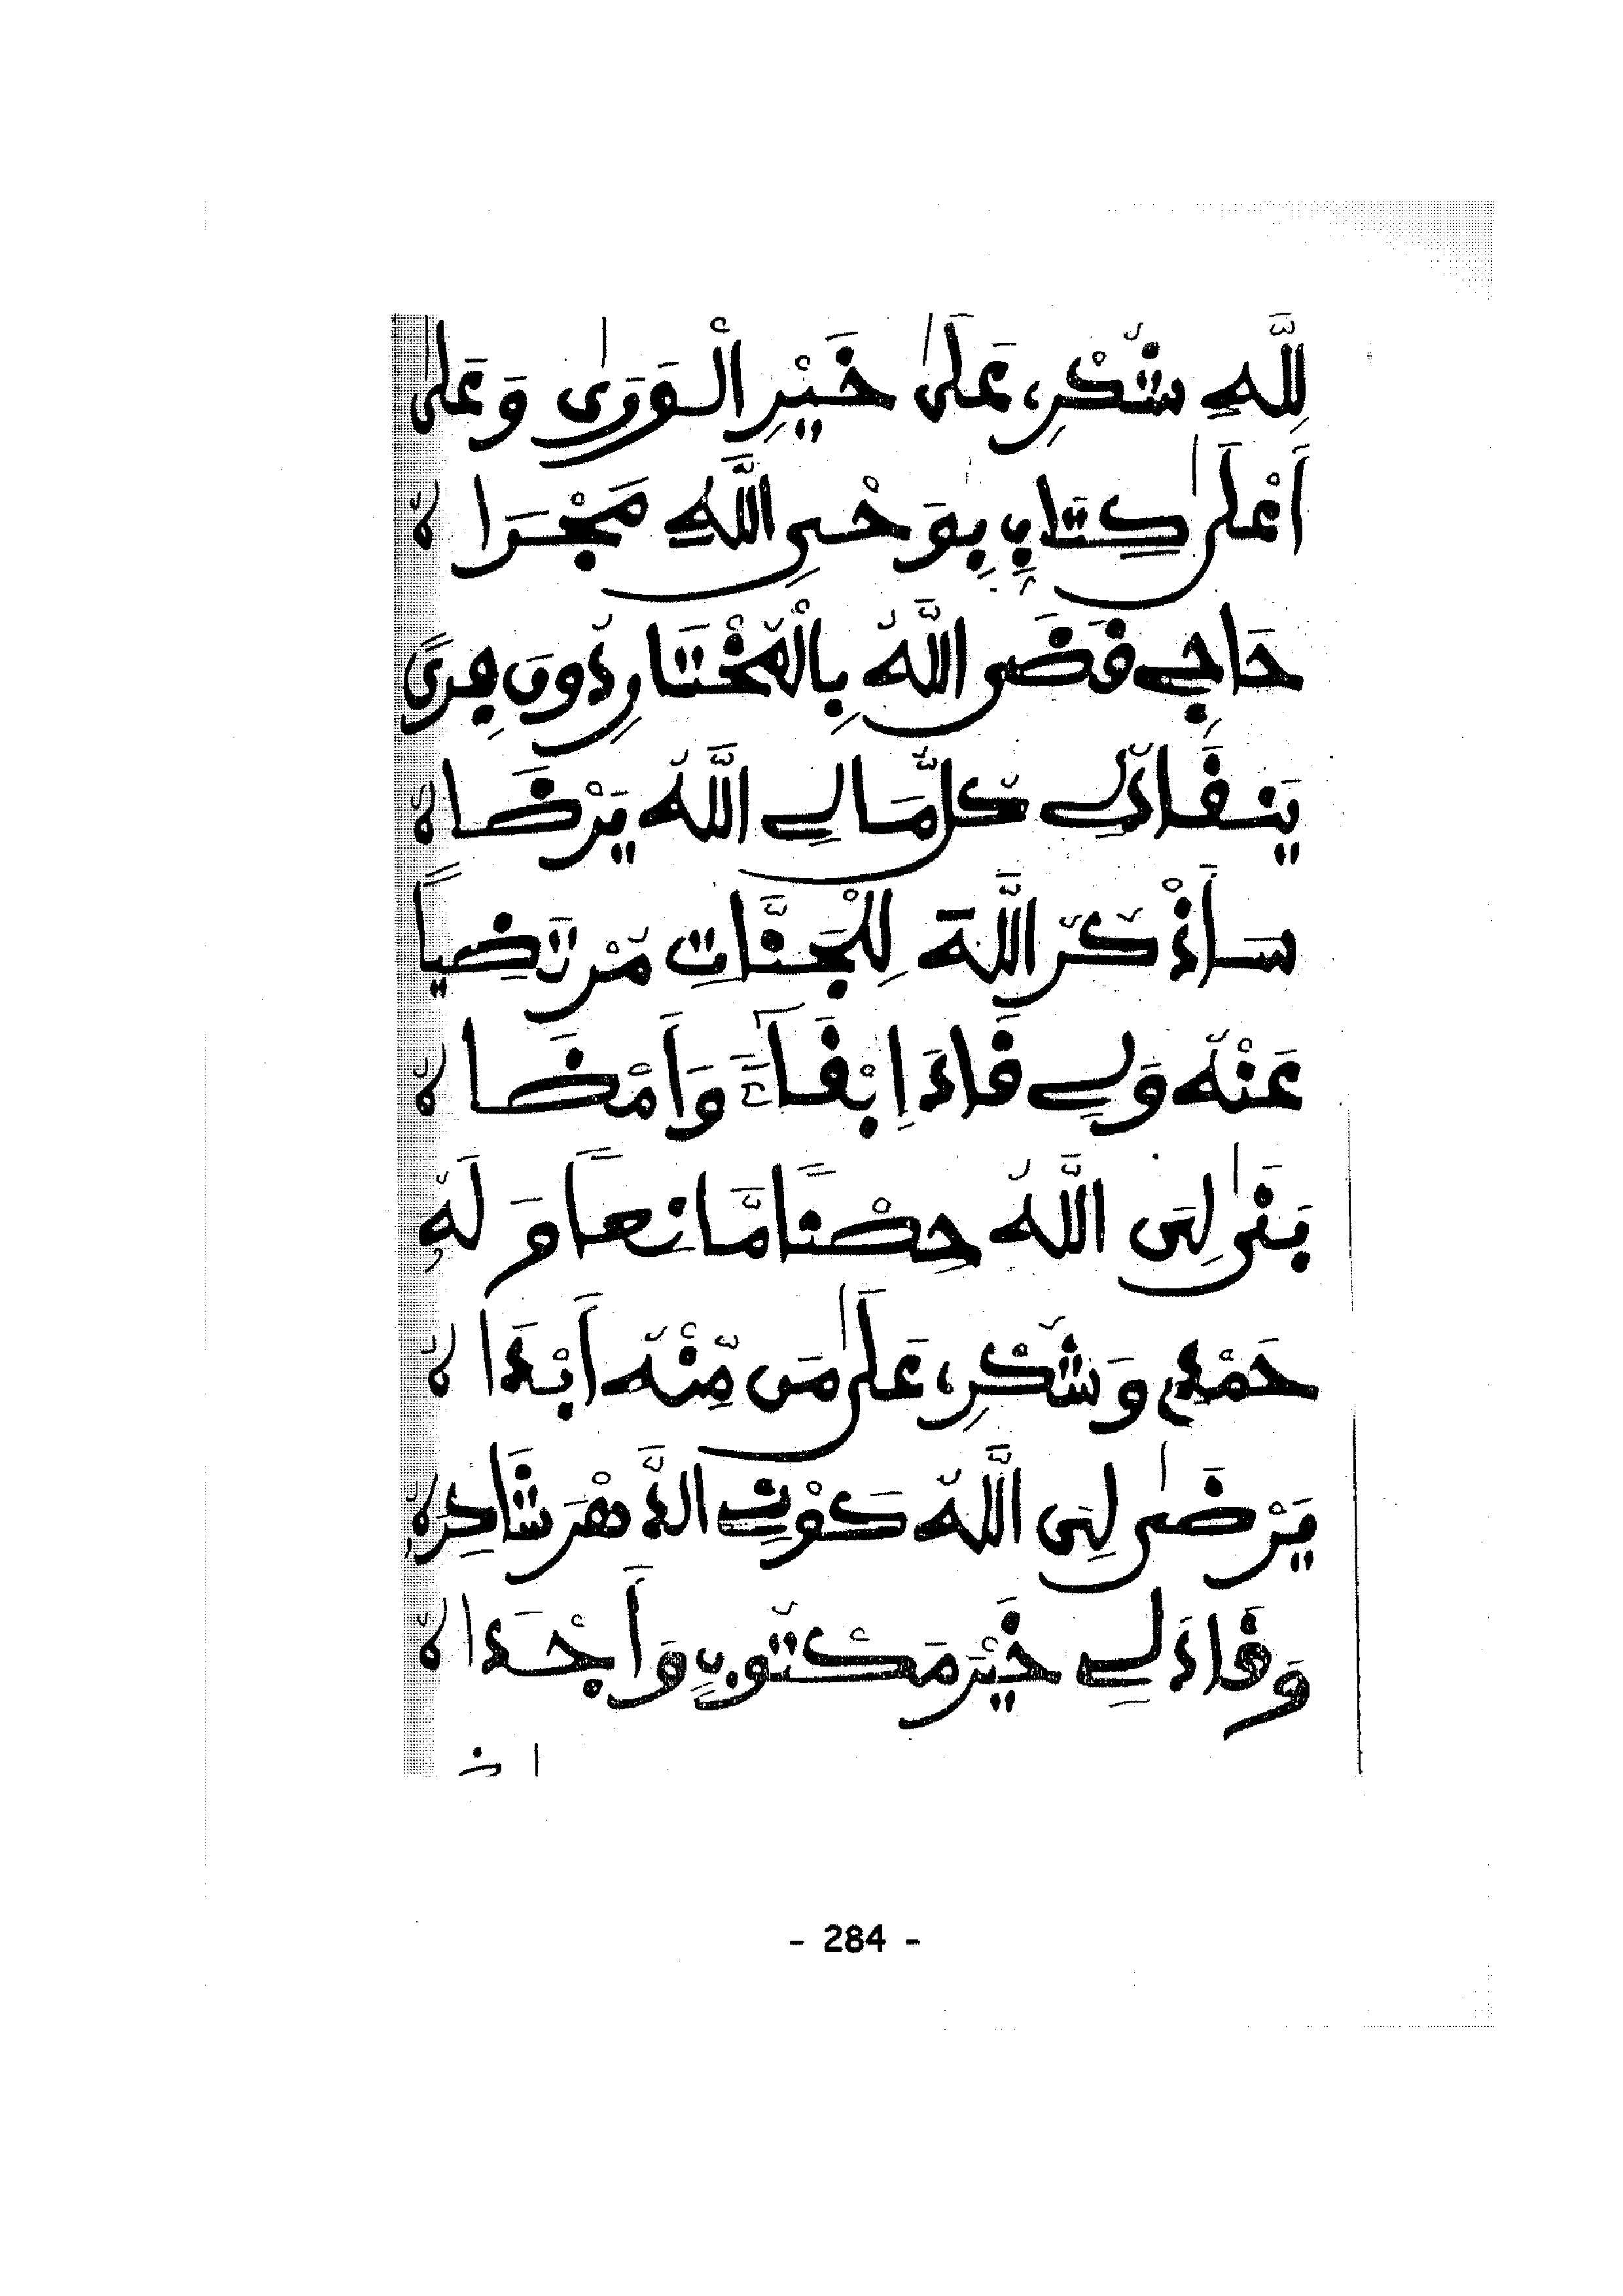 لِلَّهِ شُكْرِى عَلَىٰ خَيْرِ الْوَرَىٰ وَعَلَىٰ
أَعْلَىٰ كِتَابٍ بِوَحْىِ اللَّهِ مَجْرَاهُ
حَاجِى قَضَى اللَّهُ بِالْمُخْتَارِ دُونَ مِرًى
يَنْقَادُ لِى كُلُّ مَا لِى اللَّهُ يَرْضَاهُ
سَأَذْكُرُ اللَّهَ لِلْجَنَّاتِ مُرْتَضِيًا
عَنْهُ وَلِى قَادَ إِبْقَاءً وَأَمْضَاهُ
بَنَىٰ لِىَ اللَّهُ حِصْنًا مَّانِعًا وَ لَهُ
حَمْدِى وَشُكْرِى عَلَىٰ مَن مِّنْهُ أَبْدَاهُ
يَرْضَىٰ لِىَ اللَّهُ كَوْنِى الدَّهْرَ شَاكِرَهُ
وَقَادَ لِى خَيْرَ مَكْتُوبٍ وَأَجْدَاهُ
- 284 -